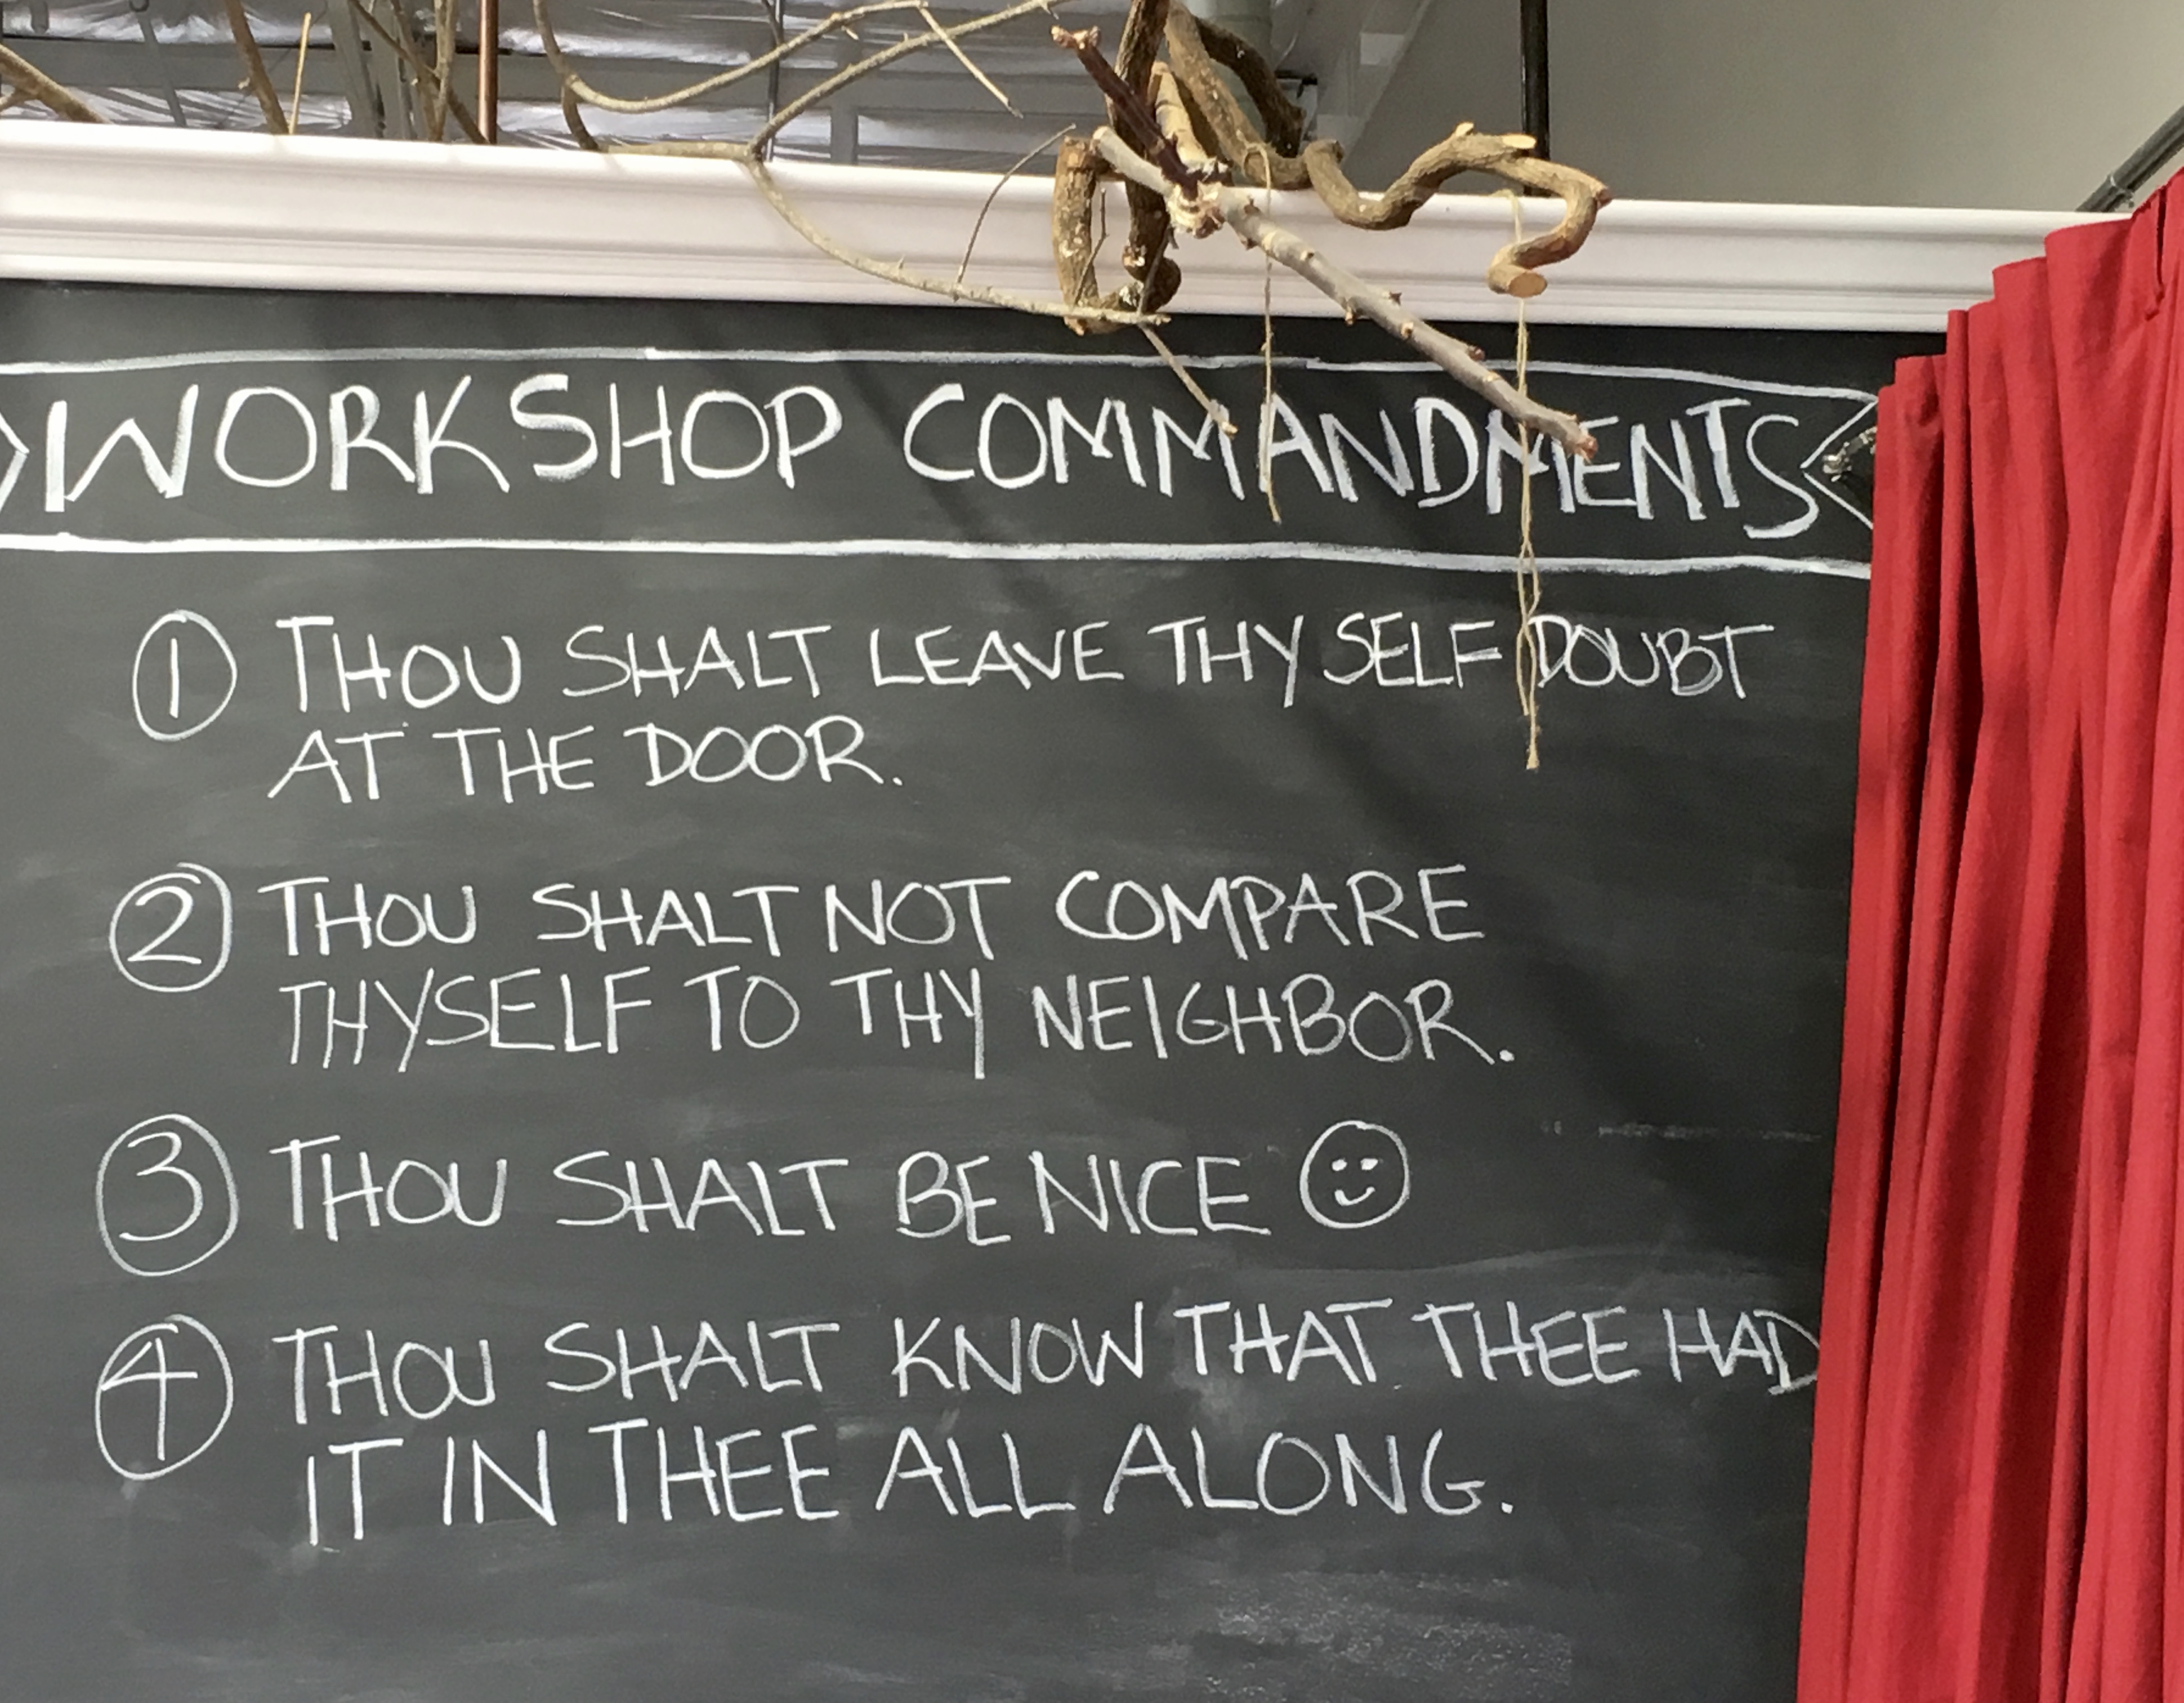 WORKSHOP COMMANDMENTS
1 THOU SHALT LEAVE THY SELF DOUBT
AT THE DOOR.
2 THOU SHALT NOT COMPARE
THYSELF TO THY NEIGHBOR.
3 THOU SHALT BE NICE
4 THOU SHALT KNOW THAT THEE HAD
IT IN THEE ALL ALONG.